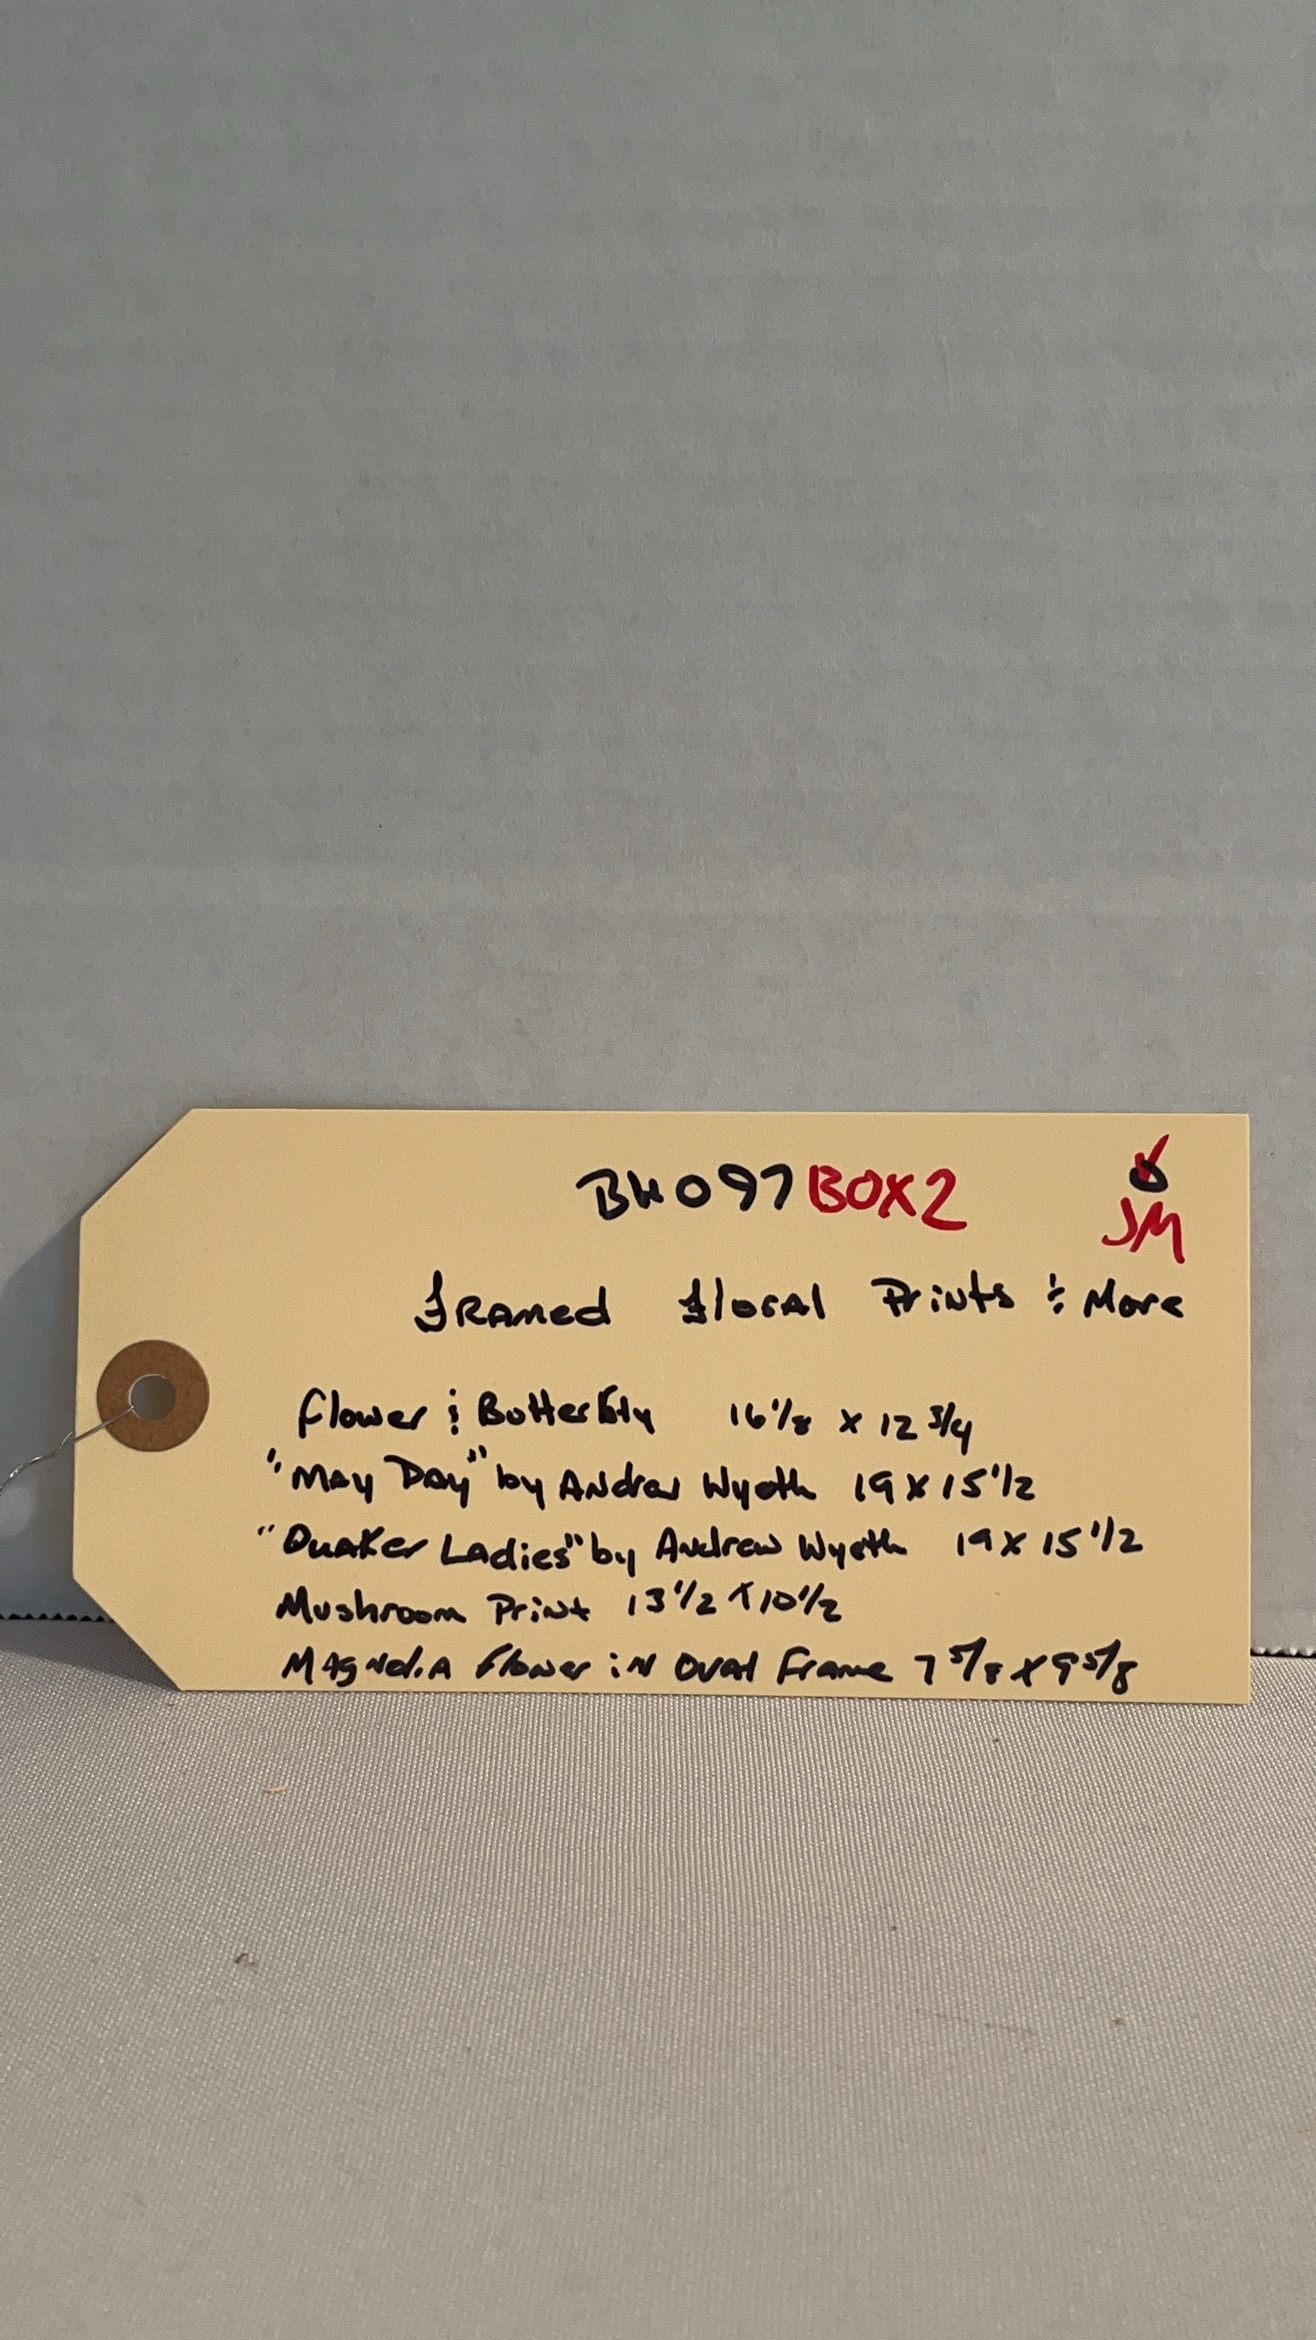 BH097 BOX2
JM
Framed Floral Prints & More
Flower & Butterfly 16 1/8 x 12 3/4
"May Day" by Andrew Wyeth 19 x 15 1/2
"Quaker Ladies" by Andrew Wyeth 19 x 15 1/2
Mushroom Print 13 1/2 x 10 1/2
Magnolia Flower in Oval Frame 7 5/8 x 9 5/8